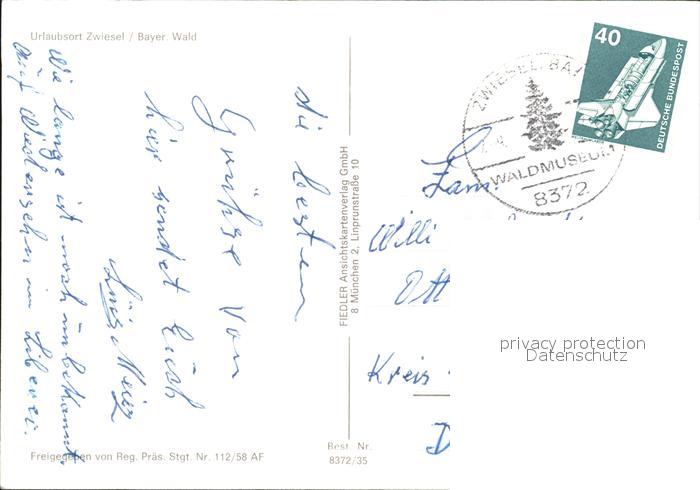 Urlaubsort Zwiesel / Bayer. Wald
die besten
Grüße von
hier sendet Euch
Wie lange ist noch unbekannt.
Auf Wiedersehn in
Freigegeben von Reg. Präs. Stgt. Nr. 112/58 AF
FIEDLER Ansichtskartenverlag GmbH
8 München 2, Linprunstraße 10
Best. Nr.
8372/35
ZWIESEL, BAY
WALDMUSEUM
8372
40
DEUTSCHE BUNDESPOST
Fam.
Willi
Ott
Kreis
D
privacy protection
Datenschutz